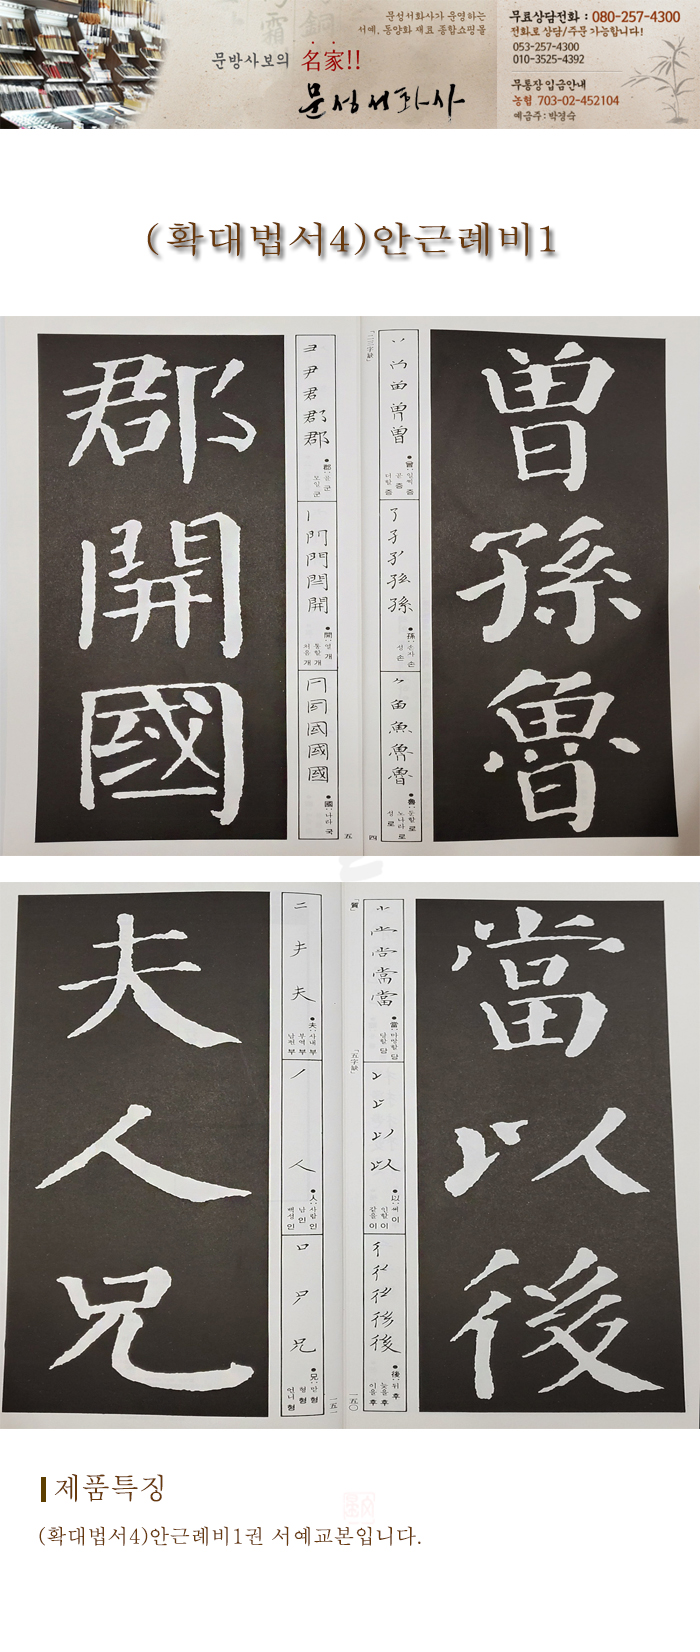 문성서화사가 운영하는
서예.동양화 재료 종합쇼핑몰
문방사보의 名家!!
문성서화사
무료상담전화 : 080-257-4300
전화로 상담/주문 가능합니다!
053-257-4300
010-3525-4392
무통장 입금안내
농협 703-02-452104
예금주:박경숙
(확대법서4)안근례비1
曾
孫
魯
曾 일찍 증
곧 증
더할 증
孫 손자 손
성 손
魯 둔할 로
노나라 로
성 로
四
郡
開
國
郡 고을 군
모일 군
開 열 개
통할 개
처음 개
國 나라 국
五
當
以
後
當 마땅할 당
당할 당
以 써 이
인할 이
같을 이
後 뒤 후
늦을 후
이을 후
「五字缺」
一五〇
夫
人
兄
夫 사내 부
부역 부
남편 부
人 사람 인
남 인
백성 인
兄 맏 형
형 형
언니 형
一五一
제품특징
(확대법서4)안근례비1권 서예교본입니다.